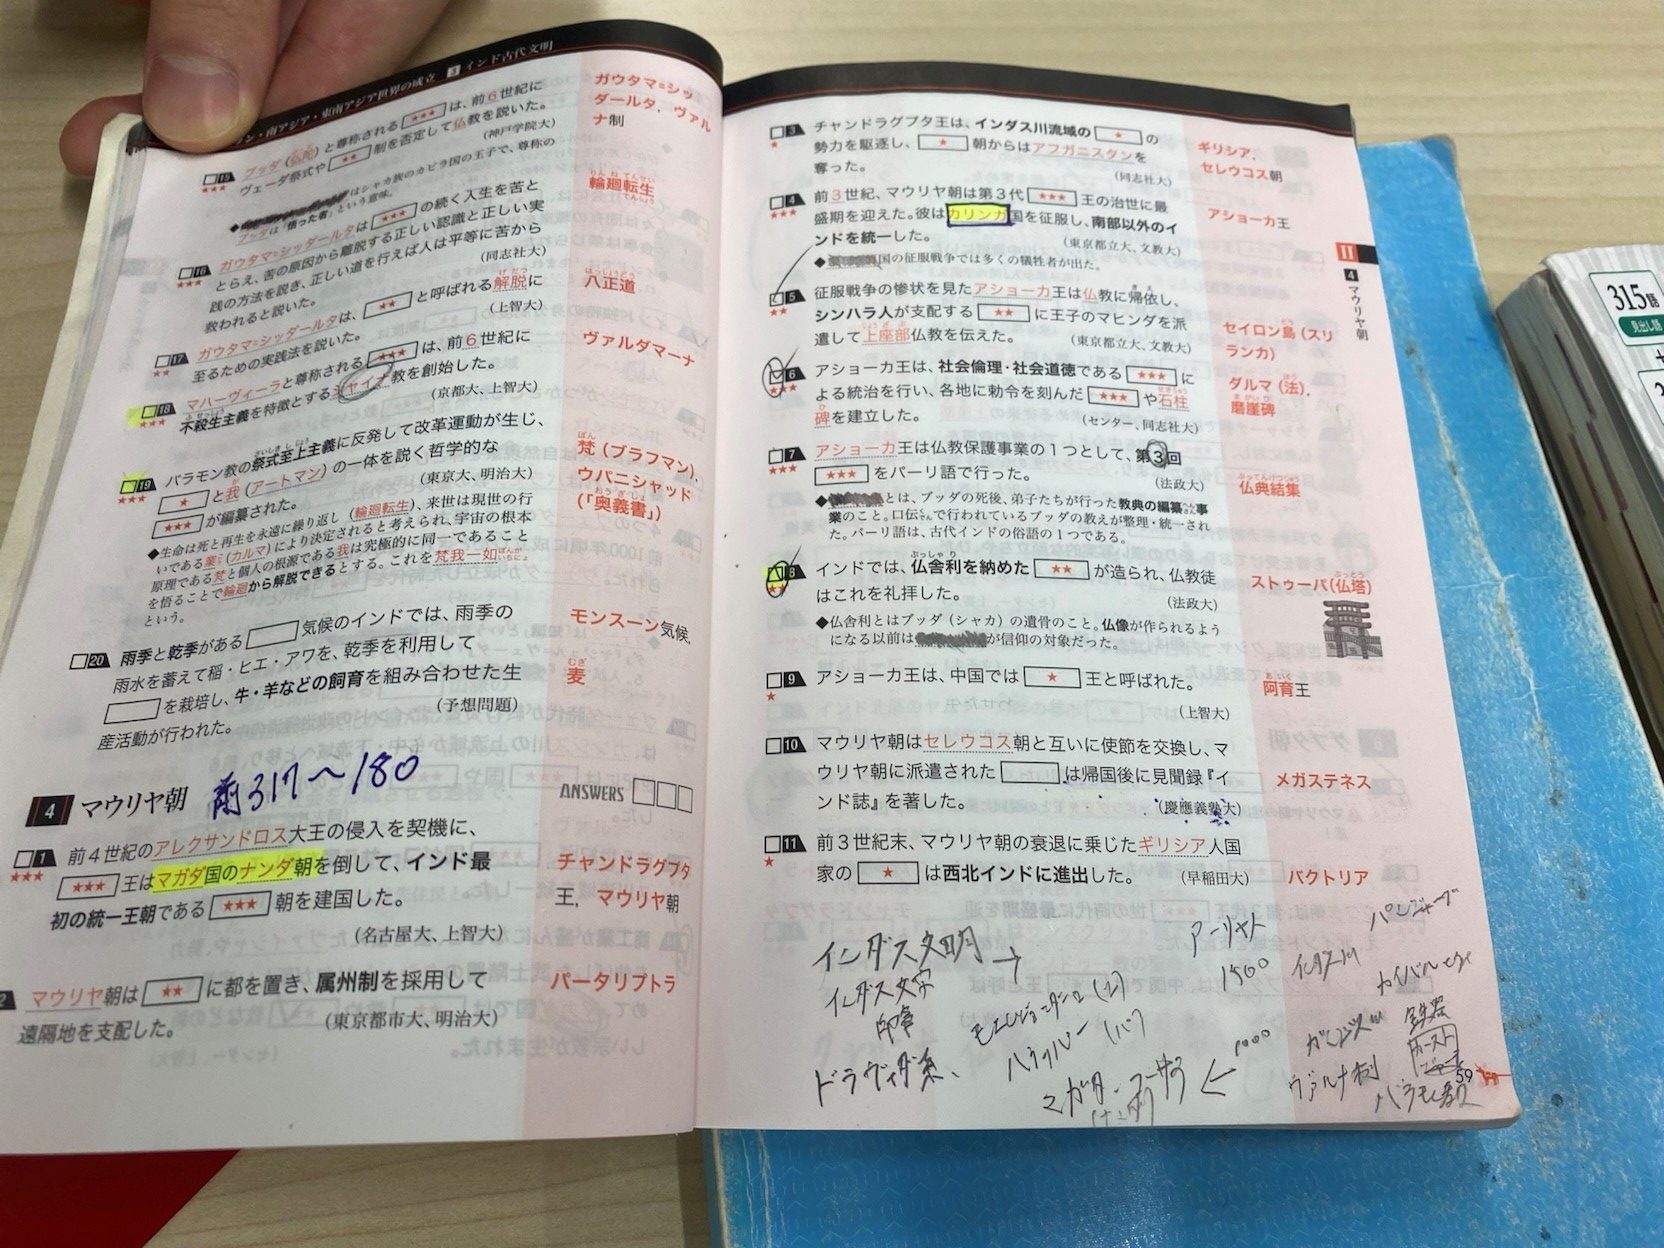 ン・南アジア・東南アジア世界の成立 3 インド古代文明
15 ブッダ(仏陀)と尊称される ★★★ は、前6世紀に
★★★ ヴェーダ祭式や ★★ 制を否定して仏教を説いた。
(神戸学院大)
はシャカ族のカピラ国の王子で、尊称の
ブッダは「悟った者」という意味。
ガウタマ=シッ
ダールタ, ヴァル
ナ制
16 ガウタマ=シッダールタは ★★★ の続く人生を苦と
★★★ とらえ、苦の原因から離脱する正しい認識と正しい実
践の方法を説き、正しい道を行えば人は平等に苦から
救われると説いた。 (同志社大)
輪廻転生
17 ガウタマ=シッダールタは、 ★★ と呼ばれる解脱に
★★ 至るための実践法を説いた。 (上智大)
八正道
18 マハーヴィーラと尊称される ★★★ は、前6世紀に
★★★ 不殺生主義を特徴とするジャイナ教を創始した。
(京都大、上智大)
ヴァルダマーナ
19 バラモン教の祭式至上主義に反発して改革運動が生じ、
★★★ ★ と我(アートマン)の一体を説く哲学的な
★★★ が編纂された。 (東京大、明治大)
◆生命は死と再生を永遠に繰り返し(輪廻転生)、来世は現世の行
いである業(カルマ)により決定されると考えられ、宇宙の根本
原理である梵と個人の根源である我は究極的に同一であること
を悟ることで輪廻から解脱できるとする。これを梵我一如
という。
梵(ブラフマン),
ウパニシャッド
(「奥義書」)
20 雨季と乾季がある 気候のインドでは、雨季の
雨水を蓄えて稲・ヒエ・アワを、乾季を利用して
を栽培し、牛・羊などの飼育を組み合わせた生
産活動が行われた。 (予想問題)
モンスーン気候,
麦
4 マウリヤ朝 前317〜180 ANSWERS
1 前4世紀のアレクサンドロス大王の侵入を契機に、
★★★ ★★★ 王はマガダ国のナンダ朝を倒して、インド最
初の統一王朝である ★★★ 朝を建国した。
(名古屋大、上智大)
チャンドラグプタ
王, マウリヤ朝
2 マウリヤ朝は ★★ に都を置き、属州制を採用して
遠隔地を支配した。 (東京都市大、明治大)
パータリプトラ
3 チャンドラグプタ王は、インダス川流域の ★ の
★ 勢力を駆逐し、 ★ 朝からはアフガニスタンを
奪った。 (同志社大)
ギリシア,
セレウコス朝
4 前3世紀、マウリヤ朝は第3代 ★★★ 王の治世に最
★★★ 盛期を迎えた。彼はカリンガ国を征服し、南部以外のイ
ンドを統一した。 (東京都立大、文教大)
◆ 国の征服戦争では多くの犠牲者が出た。
アショーカ王
5 征服戦争の惨状を見たアショーカ王は仏教に帰依し、
★★ シンハラ人が支配する ★★ に王子のマヒンダを派
遣して上座部仏教を伝えた。 (東京都立大、文教大)
セイロン島(スリ
ランカ)
6 アショーカ王は、社会倫理・社会道徳である ★★★ に
★★★ よる統治を行い、各地に勅令を刻んだ ★★★ や石柱
碑を建立した。 (センター、同志社大)
ダルマ(法),
磨崖碑
7 アショーカ王は仏教保護事業の1つとして、第3回
★★★ ★★★ をパーリ語で行った。 (法政大)
◆ とは、ブッダの死後、弟子たちが行った教典の編纂事
業のこと。口伝で行われているブッダの教えが整理・統一され
た。パーリ語は、古代インドの俗語の1つである。
仏典結集
8 インドでは、仏舎利を納めた ★★ が造られ、仏教徒
★★ はこれを礼拝した。 (法政大)
◆仏舎利とはブッダ(シャカ)の遺骨のこと。仏像が作られるよう
になる以前は が信仰の対象だった。
ストゥーパ(仏塔)
9 アショーカ王は、中国では ★ 王と呼ばれた。
★ (上智大)
阿育王
10 マウリヤ朝はセレウコス朝と互いに使節を交換し、マ
ウリヤ朝に派遣された は帰国後に見聞録『イ
ンド誌』を著した。 (慶應義塾大)
メガステネス
11 前3世紀末、マウリヤ朝の衰退に乗じたギリシア人国
★ 家の ★ は西北インドに進出した。 (早稲田大)
バクトリア
II
4 マウリヤ朝
インダス文明→
インダス文字
印章
ドラヴィダ系、
ハラッパー
アーリヤ人
1500
インダス川
パンジャーブ
1000
ガンジス
ヴァルナ制
鉄器
バラモン教
59
315語
見出し語